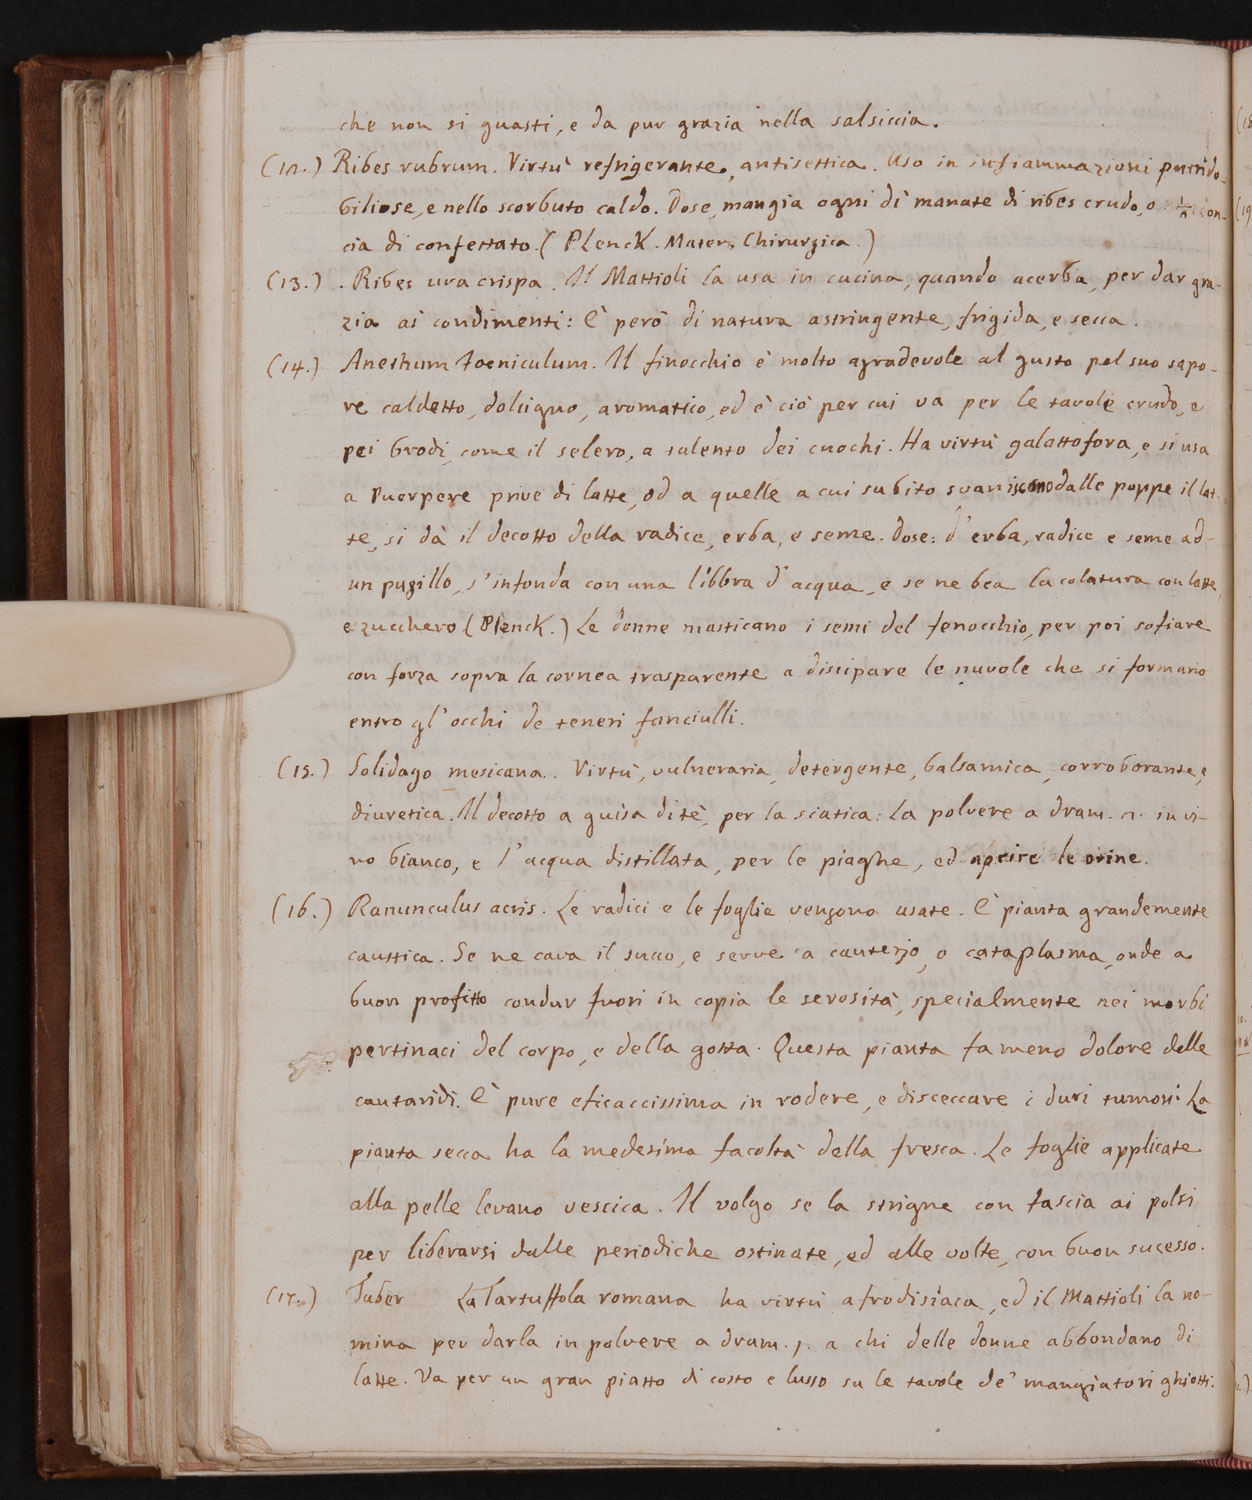 che non si guasti, e da pur grazia nella salsiccia.
(12.) Ribes rubrum. Virtù refrigerante, antisettica. Uso in infiammazioni putrido-
biliose, e nello scorbuto caldo. Dose, mangia ogni dì manate di ribes crudo, o ½ on-
cia di confettato. (Plenck. Mater. Chirurgica.)
(13.) Ribes uva crispa. Il Mattioli la usa in cucina, quando acerba, per dar gra-
zia ai condimenti: È però di natura astringente, frigida, e secca.
(14.) Anethum foeniculum. Il finocchio è molto agradevole al gusto pel suo sapo-
re caldetto, dolcigno, aromatico, ed è ciò per cui va per le tavole crudo, e
pei brodi, come il selero, a talento dei cuochi. Ha virtù galattofora, e si usa
a Puerpere prive di latte, od a quelle a cui subito svaniscono dalle poppe il lat-
te, si dà il decotto della radice, erba, e seme. Dose: d'erba, radice e seme ad-
un pugillo, s'infonda con una libbra d'acqua, e se ne bea la colatura con latte,
e zucchero (Plenck.) Le donne masticano i semi del fenocchio, per poi sofiare
con forza sopra la cornea trasparente a discipare le nuvole che si formano
entro gl'occhi de teneri fanciulli.
(15.) Solidago mesicana. Virtù, vulneraria, detergente, balsamica, corroborante, e
diuretica. Il decotto a guisa di tè, per la sciatica: La polvere a dram. in vi-
no bianco, e l'acqua distillata, per le piaghe, ed aprire le orine.
(16.) Ranunculus acris. Le radici e le foglie vengono usate. È pianta grandemente
caustica. Se ne cava il succo, e serve a cauterjo, o cataplasma, onde a
buon profitto condur fuori in copia le serosità, specialmente nei morbi
pertinaci del corpo, e della gotta. Questa pianta fa meno dolore delle
cantaridi. È pure eficaccissima in rodere, e disceccare i duri tumori. La
pianta secca ha la medesima facoltà della fresca. Le foglie applicate
alla pelle levano vescica. Il volgo se la strigne con fascia ai polsi
per liberarsi dalle periodiche ostinate, ed alle volte, con buon sucesso.
(17.) Tuber La Tartuffola romana ha virtù afrodisiaca, ed il Mattioli la no-
mina per darla in polvere a dram. j. a chi delle donne abbondano di
latte. Va per un gran piatto di costo e lusso su le tavole de' mangiatori ghiotti.